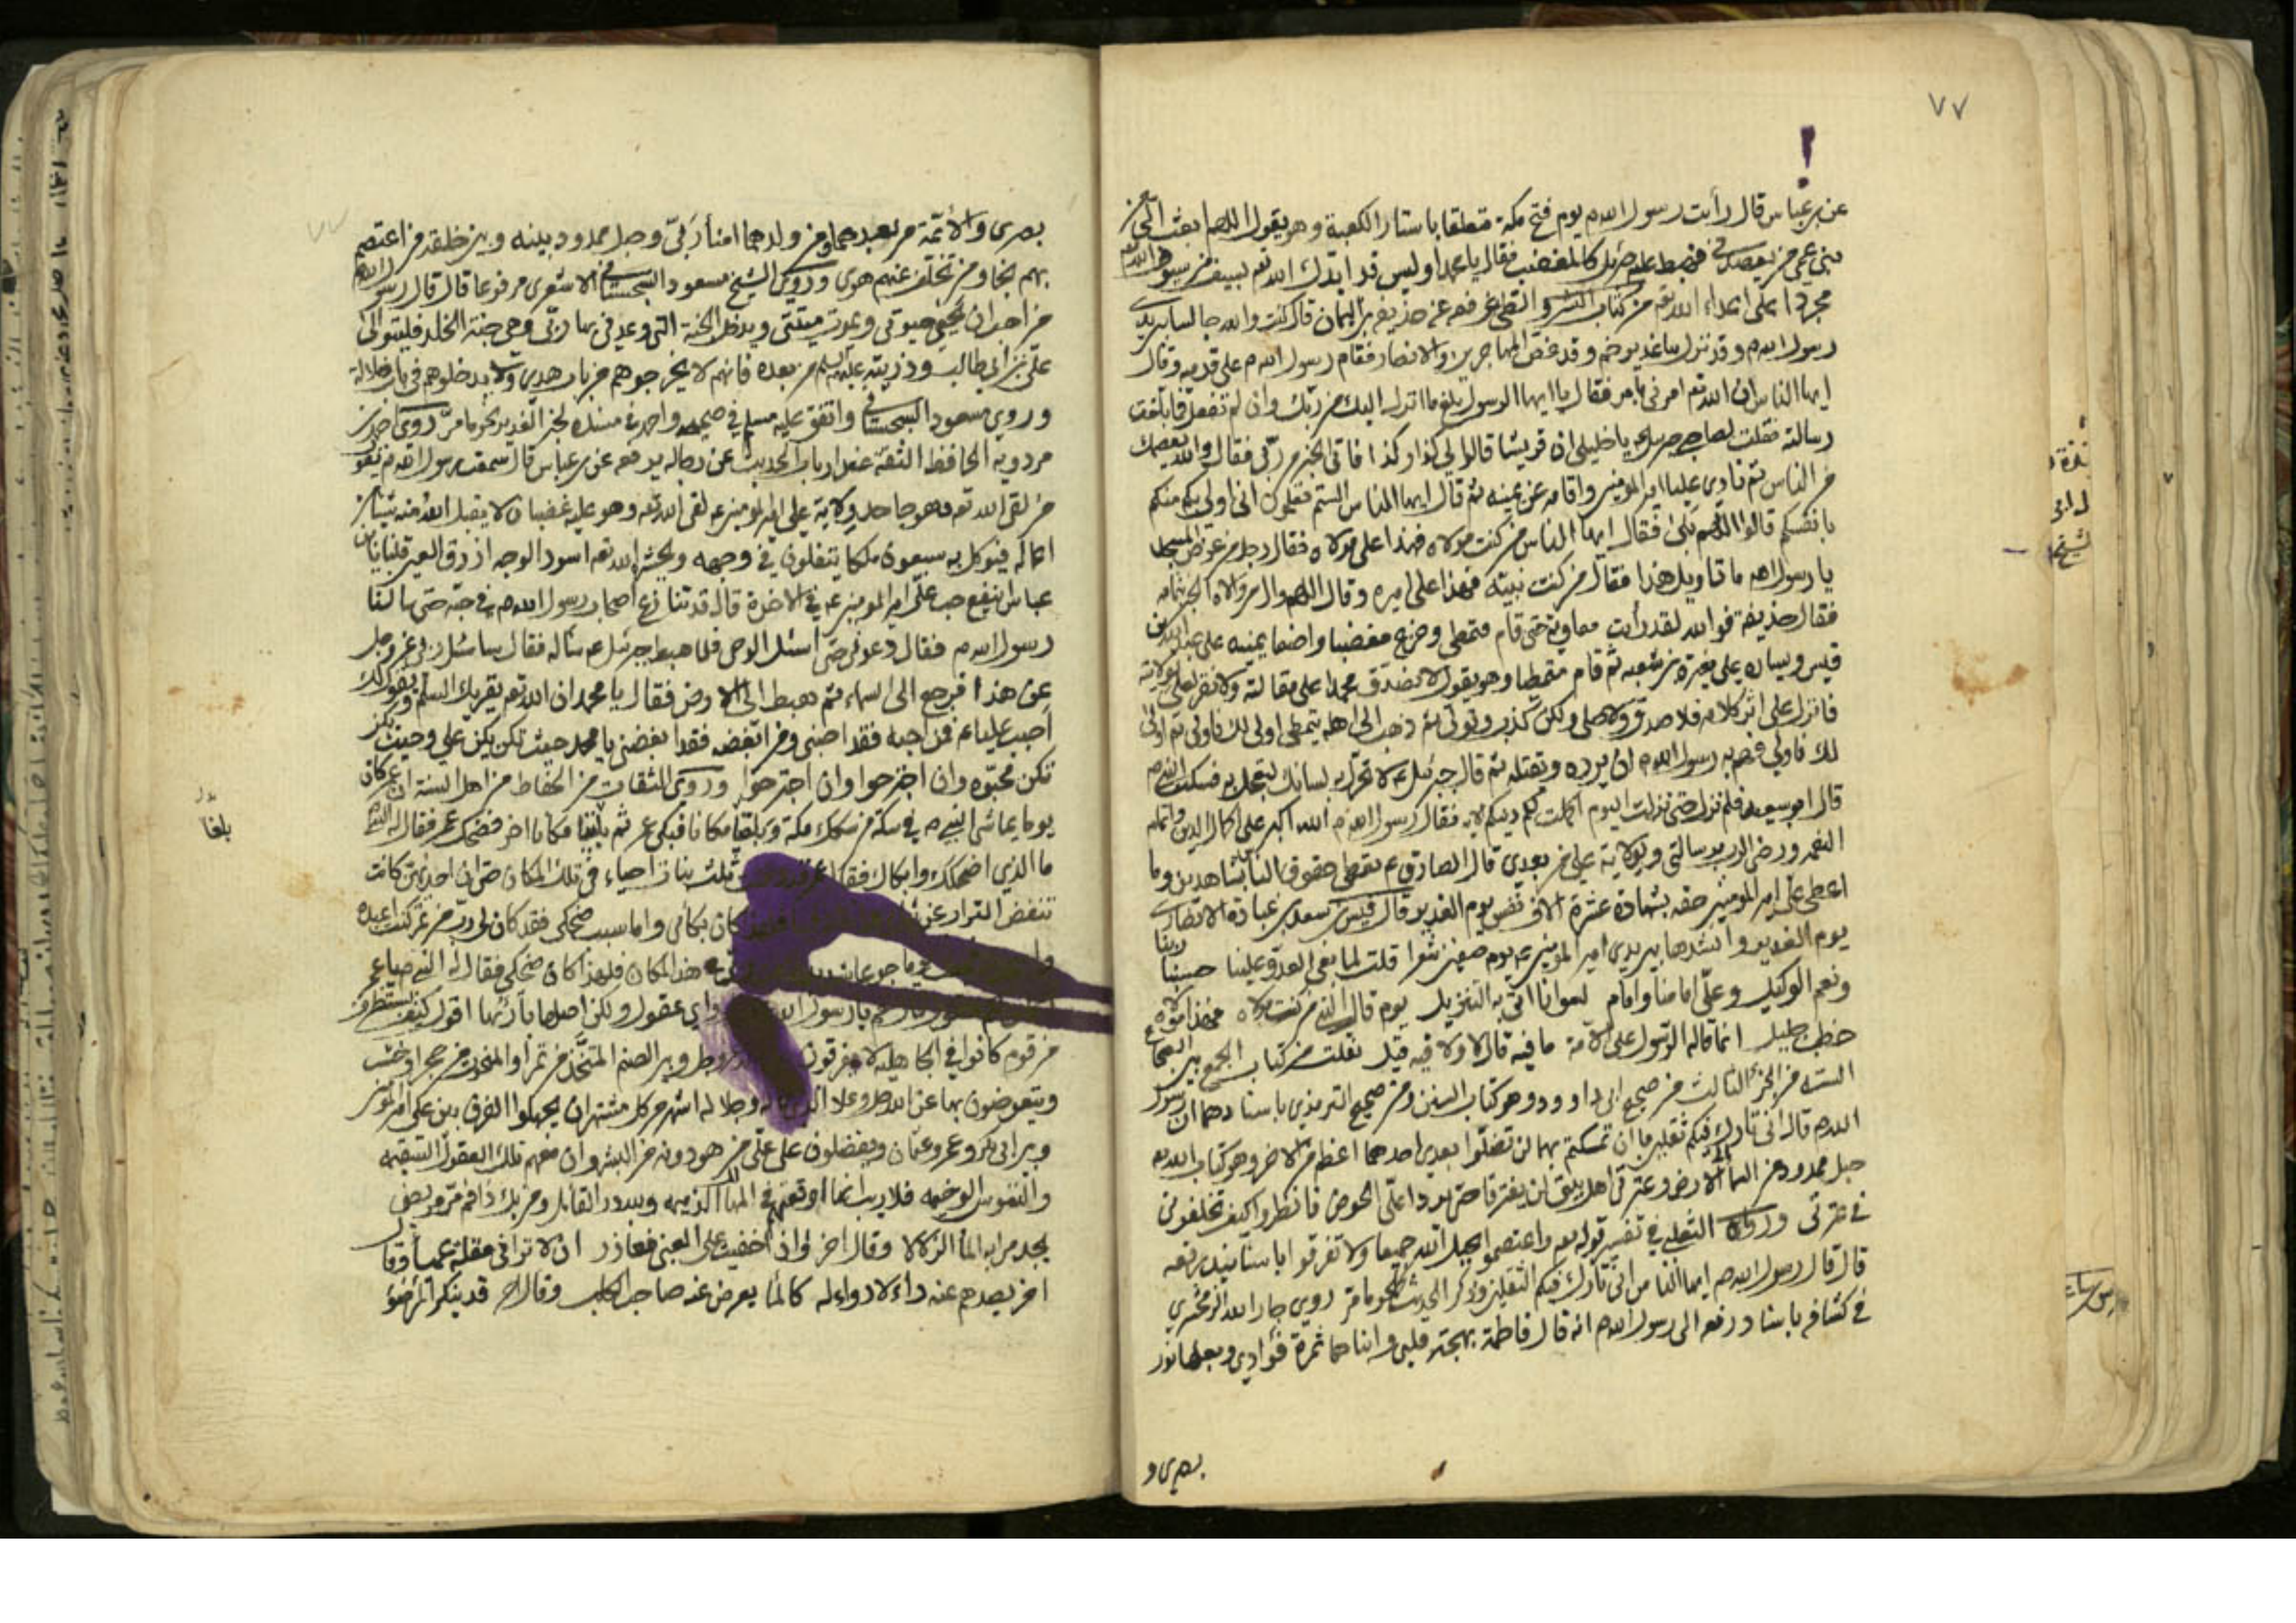 ٧٧
!
عن بن عباس قال رأيت رسول الله ص يوم فتح مكة متعلقا باستار الكعبة وهو يقول اللهم ابعث الي من
بني عمي من يعضدني فهبط عليه جبرئيل كالمغضب فقال يا محمد اوليس قد ايدك الله تعه بسيف من سيوف الله
مجردا على اعداء الله تعه من كتاب النشر و الطي عن حذيفة بن اليمان قال كنت والله جالسا بين يدي
رسول الله ص وقد نزل بنا غدير خم وقد غص المهاجرين والانصار فقام رسول الله ص على قدميه وقال
ايها الناس ان الله تعه امرني بامر فقال يا ايها الرسول بلغ ما انزل اليك من ربك وان لم تفعل فما بلغت
رسالته فقلت لصاحبي جبرئيل يا خليلي ان قريشا قالوا لي كذا وكذا فاتى الخبر من ربي فقال والله يعصمك
من الناس ثم نادى عليا امير المؤمنين واقامه عن يمينه ثم قال ايها الناس الستم تعلمون اني اولى بكم منكم
بانفسكم قالوا اللهم بلى فقال ايها الناس من كنت مولاه فهذا علي مولاه فقال رجل من عرض المسجد
يا رسول الله ما تاويل هذا فقال من كنت نبيه فهذا علي اميره وقال اللهم وال من والاه الخبر بتمامه
فقال حذيفة فوالله لقد رأيت معاوية حتى قام فتمطى وخرج مغضبا واضعا يمينه على عبد الله بن
قيس ويساره على مغيرة بن شعبه ثم قام متمطيا وهو يقول لا نصدق محمدا على مقالته ولا نقر لعلي بولايته
فانزل على اثر كلامه فلا صدق ولا صلى ولكن كذب وتولى ثم ذهب الى اهله يتمطى اولى لك فاولى ثم اولى
لك فاولى فهم به رسول الله ص ان يرده ويقتله ثم قال جبرئيل ع لا تحرك به لسانك لتعجل به فسكت النبي ص
قال ابو سعيد فلم ننزل حتى نزلت اليوم اكملت لكم دينكم الاية فقال رسول الله ص الله اكبر على اكمال الدين واتمام
النعمه ورضى الرب برسالتي وبولاية علي من بعدي قال الصادق ع نعطي حقوق الناس بشاهدين وما
اعطي علي امير المؤمنين حقه بشهادة عشرة الاف نفس يوم الغدير قال قيس بن سعد بن عبادة الانصاري
يوم الغدير وانشدها بين يدي امير المؤمنين ع يوم صفين شعرا قلت لما بغى العدو علينا حسبنا ربنا
ونعم الوكيل وعلي امامنا وامام لسوانا اتى به التنزيل يوم قال النبي من كنت مولاه فهذا مولاه
خطب جليل انما قاله الرسول على الامة ما فيه قال ولا فيه قيل نقلت من كتاب الجمع بين الصحاح
الستة من الجزء الثالث من صحيح ابي داوود وهو كتاب السنن ومن صحيح الترمذي باسنادهما ان رسول
الله ص قال اني تارك فيكم ثقلين ما ان تمسكتم بهما لن تضلوا بعدي احدهما اعظم من الاخر وهو كتاب الله تعه
حبل ممدود من السماء الى الارض وعترتي اهل بيتي لن يفترقا حتى يردا علي الحوض فانظروا كيف تخلفوني
في عترتي ورواه الثعلبي في تفسير قوله تعه واعتصموا بحبل الله جميعا ولا تفرقوا باسانيد رفعه
قال قال رسول الله ص ايها الناس اني تارك فيكم الثقلين وذكر الحديث نحو ما مر روى جار الله الزمخشري
في كشافه باسناد رفعه الى رسول الله ص انه قال فاطمة بهجة قلبي وابناهما ثمرة فؤادي وبعلها نور
بصري و
بصري والائمة من بعدهما من ولدهما امناء ربي وحبل ممدود بينه وبين خلقه من اعتصم
بهم نجا ومن تخلف عنهم هوى وروى الشيخ مسعود السجستاني الاشعري مرفوعا قال قال رسول الله ص
من احب ان يحيى حيوتي ويموت ميتتي ويدخل الجنة التي وعدني بها ربي وهي جنة الخلد فليتولى
علي بن ابي طالب وذريته عليهم السلم من بعده فانهم لا يخرجوهم من باب هدى ولا يدخلوهم في باب ضلالة
وروى مسعود السجستاني واتفق عليه مسلم في صحيحه واحمد في مسنده لخبر الغدير نحو ما مر روى احمد بن
مردويه الحافظ الثقة عند ارباب الحديث عن رجاله يرفعه عن بن عباس قال سمعت رسول الله ص يقول
من لقى الله تعه وهو جاحد ولاية علي امير المؤمنين ع لقى الله تعه وهو عليه غضبان لا يقبل الله منه شيئا من
اعماله فيوكل به سبعون ملكا يتفلون في وجهه ويحشره الله تعه اسود الوجه ازرق العين قلنا يا بن
عباس اينفع حب علي امير المؤمنين ع في الاخرة قال قد تنازع اصحاب رسول الله ص في حبه حتى سالنا
رسول الله ص فقال دعوني حتى اسئل الوحى فلما هبط جبرئيل ع سأله فقال ساسئل ربي عز وجل
عن هذا فرجع الى السماء ثم هبط الى الارض فقال يا محمد ان الله تعه يقريك السلم ويقول لك
احب عليا ع فمن احبه فقد احبني ومن ابغضه فقد ابغضني يا محمد حيث تكن يكن علي وحيث يكن
تكن محبوه وان اجترحوا وان اجترحوا وروى الثقات من الحفاظ من اهل السنة ان عمر كان
يوما يماشي النبي ص في سكة من سكك مكة وبلغا مكانا فبكى عمر ثم بلغا مكانا اخر فضحك عمر فقال له النبي ص
ما الذي اضحكك وابكاك فقال ثلث بنات احياء في تلك المكان حتى ان احديهن كانت
تنفض التراب عن كان بكائي واما سبب ضحكي فقد كان لي رب من تمر كنت اعبده
هذا المكان فلهذا كان ضحكي فقال له النبي ص يا عمر
يا رسول الله واي عقول ولكن اضلها بارئها اقول كيف يستطرف
من قوم كانوا في الجاهلية لا يفرقون وبين الصنم المتخذ من تمر او المنحوت من حجر او خشب
ويتعوضون بها عن الله جل وعلا وجلاله اشهر من كل مشتهر ان يجهلوا الفرق بين علي امير المؤمنين
وبين ابي بكر وعمر وعثمان ويفضلون على علي من هو دونه من البشر وان معهم تلك العقول السقيمه
والنفوس الوخيمه فلا ريب انها اوقعتهم في المهالك الذميمه ولله در القائل ومن يك ذا فم مر مريض
يجد مرا به الماء الزلالا وقال اخر واذا خفيت على الغبي فعاذر ان لا تراني مقلة عمياء وقال
اخر يصدهم عنه داء لا دواء له كالماء يعرض عنه صاحب الكلب وقال اخر قد ينكر المرضى
بلغا